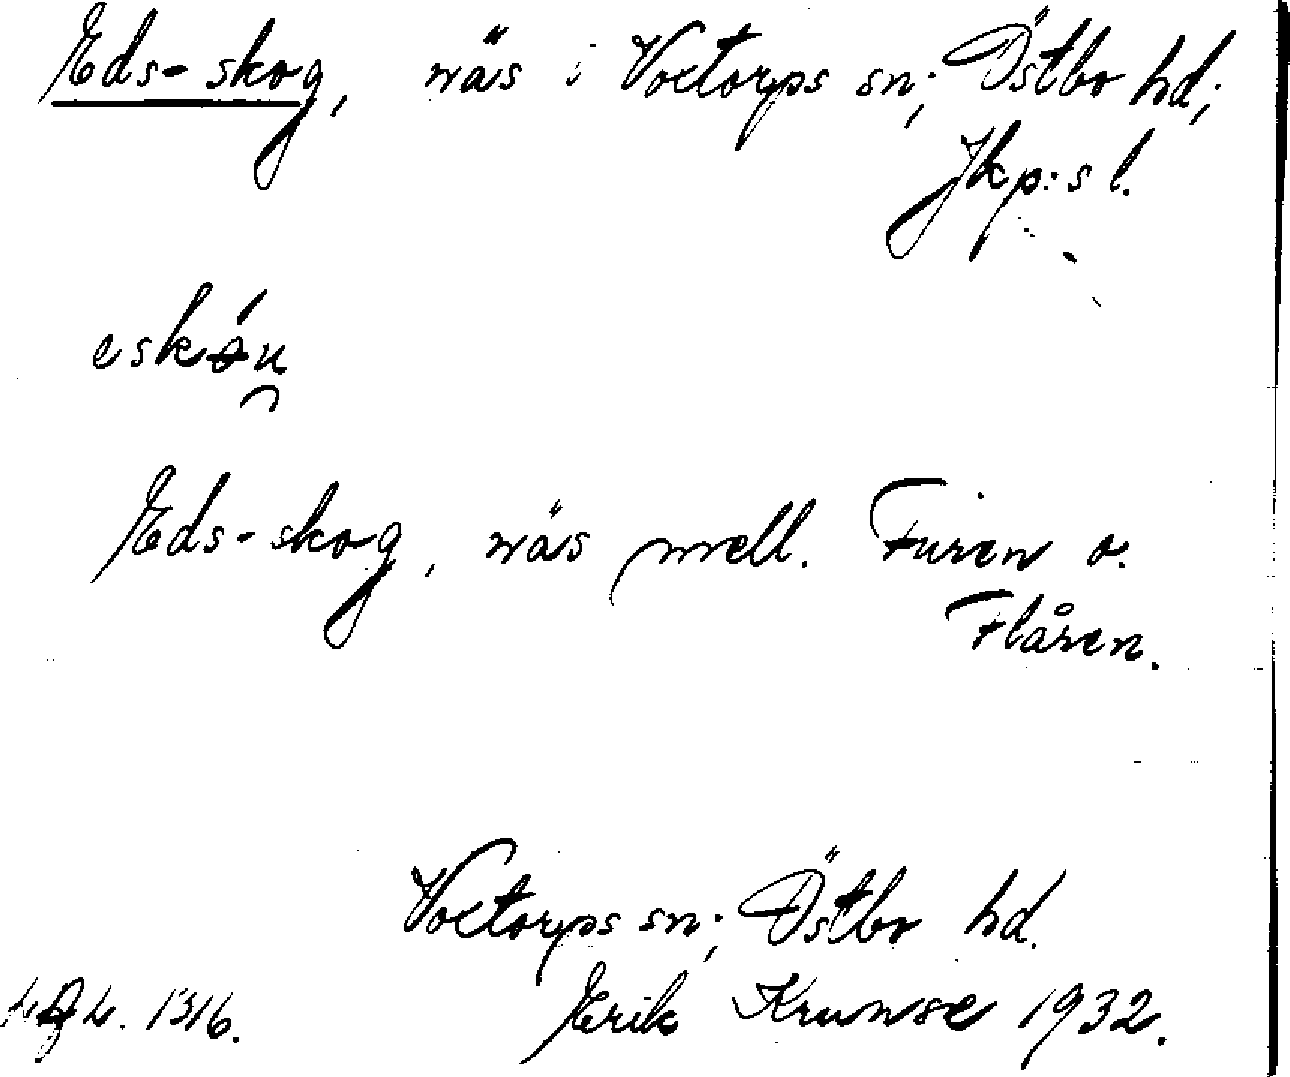 Eds-skog, näs i Voxtorps sn; Östbo hd;
Jkp:s l.
Eds-skog, näs mell. Furen o.
Flåren.
Voxtorps sn; Östbo hd.
1316. Erik Krunse 1932.